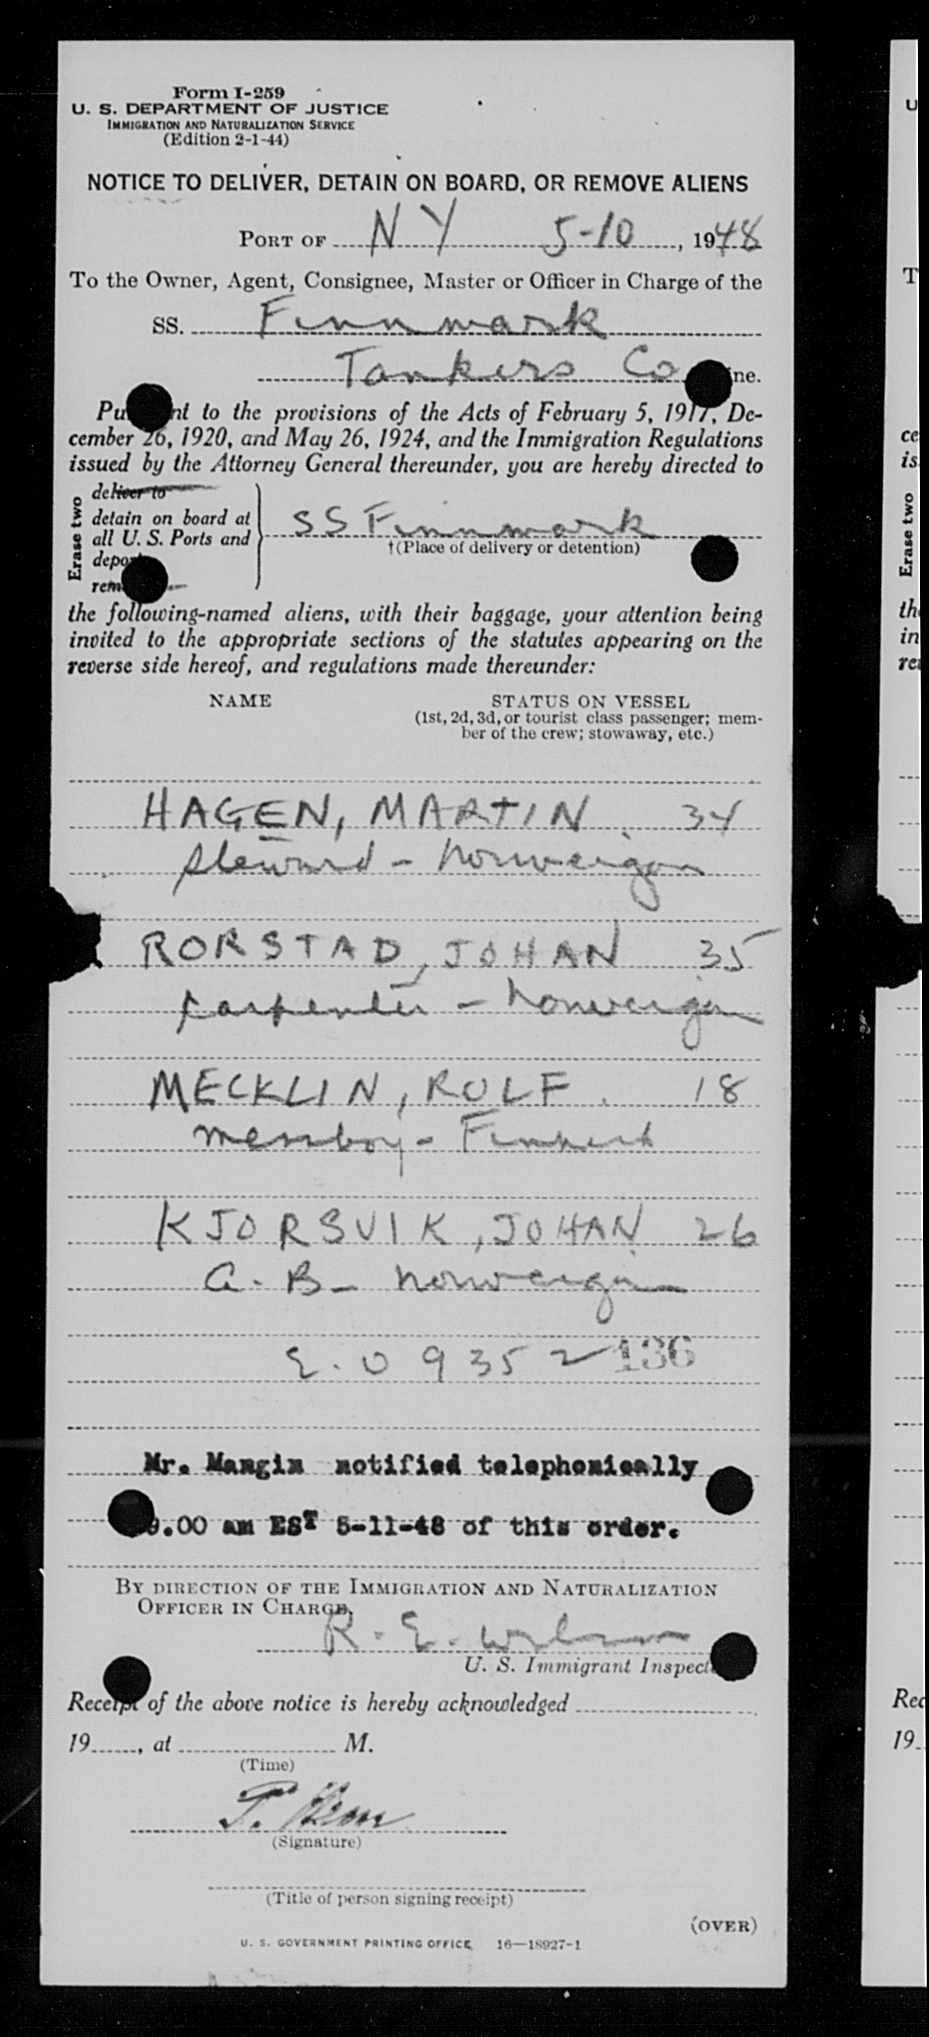 Form I-259
U. S. DEPARTMENT OF JUSTICE
IMMIGRATION AND NATURALIZATION SERVICE
(Edition 2-1-44)
NOTICE TO DELIVER, DETAIN ON BOARD, OR REMOVE ALIENS
PORT OF NY 5-10, 1948
To the Owner, Agent, Consignee, Master or Officer in Charge of the
SS. Finnmark
Tankers Co ne.
Pu nt to the provisions of the Acts of February 5, 1917, De-
cember 26, 1920, and May 26, 1924, and the Immigration Regulations
issued by the Attorney General thereunder, you are hereby directed to
Erase two
deliver to
detain on board at
all U. S. Ports and
depo
rem
SS Finnmark
†(Place of delivery or detention)
the following-named aliens, with their baggage, your attention being
invited to the appropriate sections of the statutes appearing on the
reverse side hereof, and regulations made thereunder:
NAME STATUS ON VESSEL
(1st, 2d, 3d, or tourist class passenger; mem-
ber of the crew; stowaway, etc.)
HAGEN, MARTIN. 34
Steward - Norweigan
RORSTAD, JOHAN 35
Carpenter - Norweigan
MECKLIN, ROLF. 18
Messboy - Finnish
KJORSVIK, JOHAN 26
A. B - Norweigan
E. 09352 136
Mr. Mangin notified telephonically
9.00 am EST 5-11-48 of this order.
BY DIRECTION OF THE IMMIGRATION AND NATURALIZATION
OFFICER IN CHARGE,
R. E. Wilson
U. S. Immigrant Inspect
Receipt of the above notice is hereby acknowledged
19, at M.
(Time)
(Signature)
(Title of person signing receipt)
(OVER)
U. S. GOVERNMENT PRINTING OFFICE 16—18927-1
U
T
ce
is
Erase two
th
in
re
Rec
19